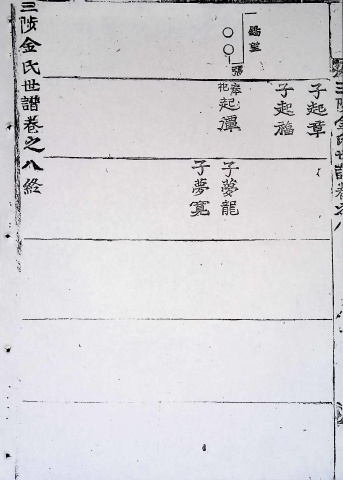 三陟金氏世譜卷之八
鷄望
○○
張
子起章
子起福
奉祀起潭
子夢龍
子夢寬
三陟金氏世譜卷之八終